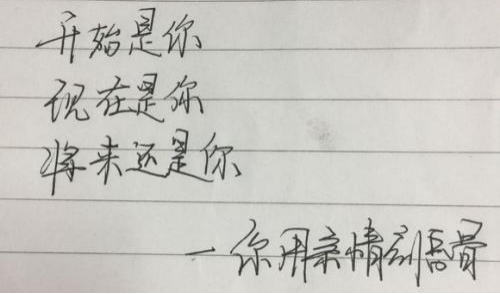 开始是你
现在是你
将来还是你
一你用亲情刻唇骨